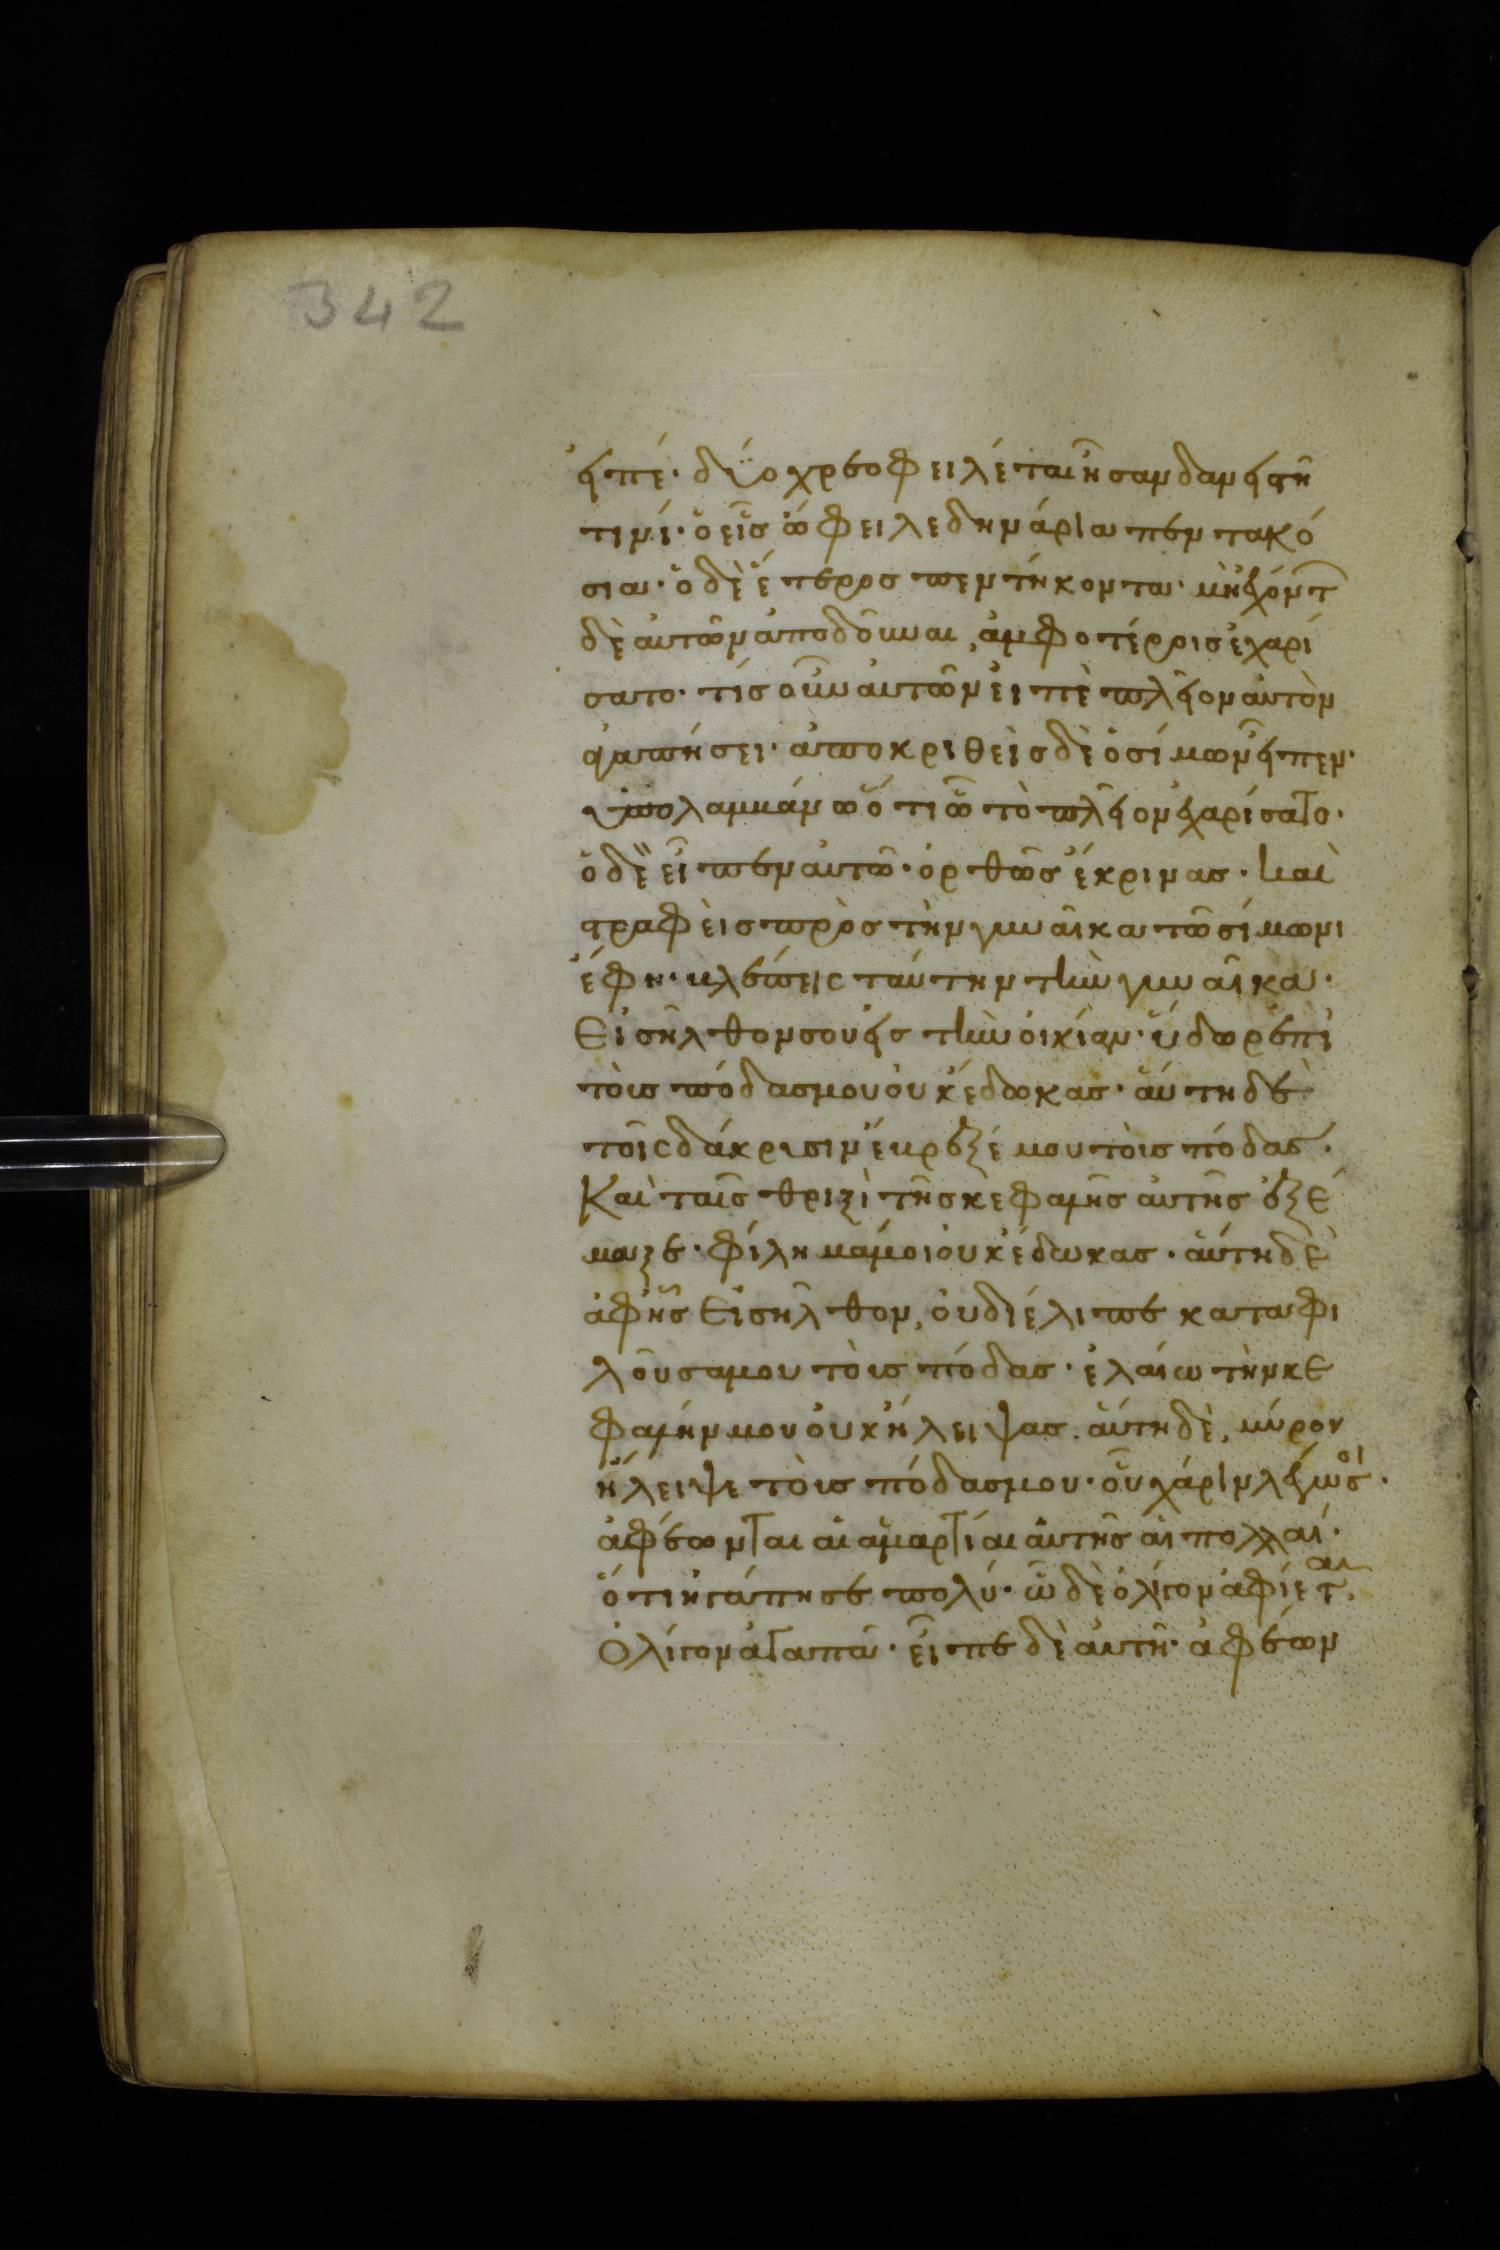 342
εἰπέ· δύο χρεοφειλέται ἦσαν δανειστῆ
τινί· ὁ εἷς ὤφειλε δηνάρια πεντακό
σια· ὁ δὲ ἕτερος πεντήκοντα· μὴ ἐχόντ
δὲ αὐτῶν ἀποδοῦναι, ἀμφοτέροις ἐχαρί
σατο· τίς οὖν αὐτῶν εἰπὲ πλεῖον αὐτὸν
ἀγαπήσει· ἀποκριθεὶς δὲ ὁ σίμων εἶπεν·
ὑπολαμβάνω ὅτι ὧ τὸ πλεῖον ἐχαρίσατο·
ὁ δὲ εἶπεν αὐτῶ· ὀρθῶς ἔκρινας· καὶ
στραφεὶς πρὸς τὴν γυναῖκα τῶ σίμωνι
ἔφη· βλέπεις ταύτην τὴν γυναῖκα·
Εἰσῆλθον σου εἰς τὴν οἰκίαν· ὕδωρ ἐπὶ
τοὺς πόδας μου οὐκ ἔδωκας· αὕτη δὲ
τοῖς δάκρυσιν ἔβρεξέ μου τοὺς πόδας·
Καὶ ταῖς θριξὶ τῆς κεφαλῆς αὐτῆς ἐξέ
μαξε· φίλημά μοι οὐκ ἔδωκας· αὕτη δὲ
ἀφῆς Εἰσῆλθον, οὐ διέλιπε καταφι
λοῦσα μου τοὺς πόδας· ἐλαίω τὴν κε
φαλήν μου οὐκ ἤλειψας· αὕτη δὲ, μύρον
ἤλειψε τοὺς πόδας μου· οὗ χάριν λέγω σοι·
ἀφέωνται αἱ ἁμαρτίαι αὐτῆς αἱ πολλαί·
ὅτι ἠγάπησε πολύ· ὧ δὲ ὀλίγον ἀφίεται,
Ὀλίγον ἀγαπᾶ· εἶπε δὲ αὐτῆ· ἀφέων